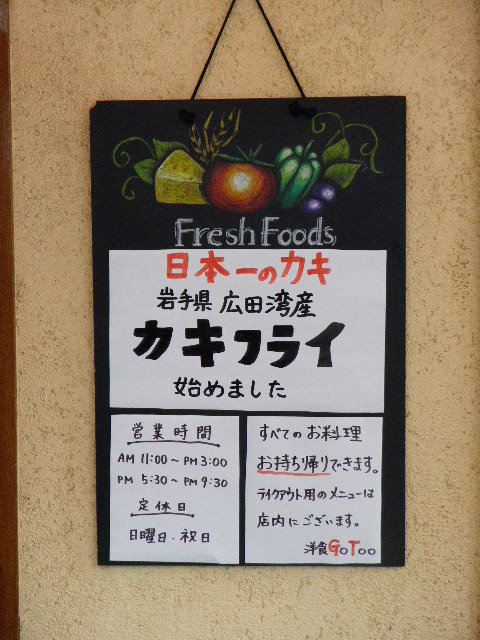 Fresh Foods
日本一のカキ
岩手県 広田湾産
カキフライ
始めました
営業時間
AM 11:00～PM 3:00
PM 5:30～PM 9:30
定休日
日曜日・祝日
すべてのお料理
お持ち帰りできます。
テイクアウト用のメニューは
店内にございます。
洋食GoToo